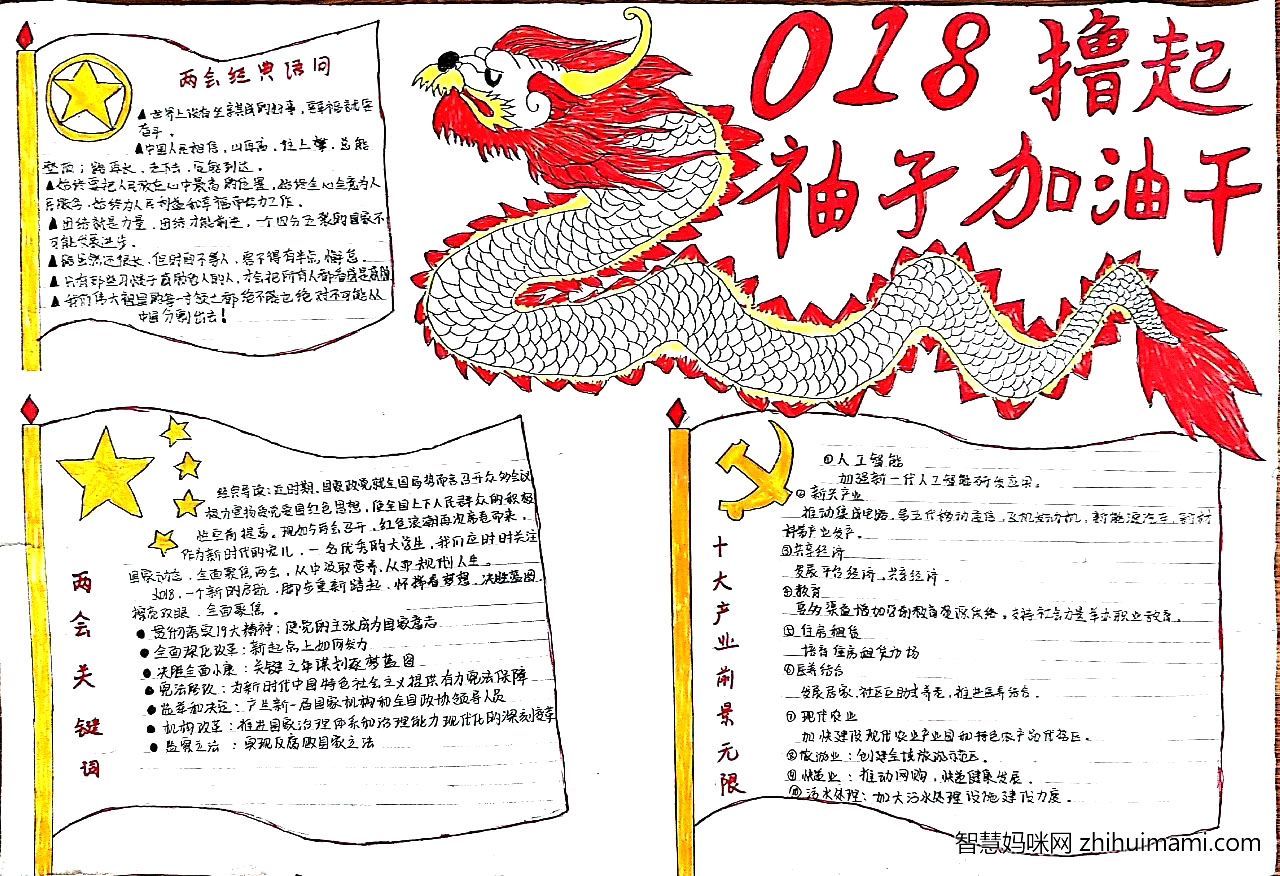 018 撸起
袖子加油干
两会经典语句
▲世界上没有坐享其成的好事，要幸福就要
奋斗。
▲中国人民相信，山再高，往上攀，总能
登顶；路再长，走下去，定能到达。
▲始终要把人民放在心中最高的位置，始终全心全意为人
民服务，始终为人民利益和幸福而努力工作。
▲团结就是力量，团结才能前进，一个四分五裂的国家不
可能发展进步。
▲路虽然还很长，但时间不等人，容不得有半点懈怠。
▲只有那些习惯于自欺欺人的人，才会把所有人都看成是威胁
▲我们伟大祖国的每一寸领土都绝不能也绝对不可能从
中国分割出去！
两会关键词
经典导读：近时期，国家政党就全国局势而言召开众多会议
极力宣扬爱党爱国红色思想，使全国上下人民群众的积极
性空前提高。现如今两会召开，红色浪潮再次席卷而来。
作为新时代的宠儿，一名优秀的大学生，我们应时时关注
国家动态，全面聚焦两会，从中汲取营养，从而规划人生。
2018，一个新的启航，脚步重新踏起，怀揣着梦想，决胜蓝图
擦亮双眼，全面聚焦。
●贯彻落实19大精神：使党的主张成为国家意志
●全面深化改革：新起点上如何发力
●决胜全面小康：关键之年谋划逐梦蓝图
●宪法修改：为新时代中国特色社会主义提供有力宪法保障
●选举和决定：产生新一届国家机构和全国政协领导人员
●机构改革：推进国家治理体系和治理能力现代化的深刻变革
●监察立法：实现反腐败国家立法
十大产业前景无限
①人工智能
加强新一代人工智能研发应用。
②新兴产业
推动集成电路、第五代移动通信、飞机发动机、新能源汽车、新材
料等产业发产。
③共享经济
发展平台经济、共享经济．
④教育
要多渠道增加公办教育资源供给，支持社会力量举办职业教育。
⑤住房租赁
培育住房租赁市场
⑥医养结合
发展居家、社区互助式养老，推进医养结合．
⑦现代农业
加快建设现代农业产业园和特色农产品优势区．
⑧旅游业：创建全域旅游示范区．
⑨快递业：推动网购，快递健康发展．
⑩污水处理：加大污水处理设施建设力度．
智慧妈咪网 zhihuimami.com